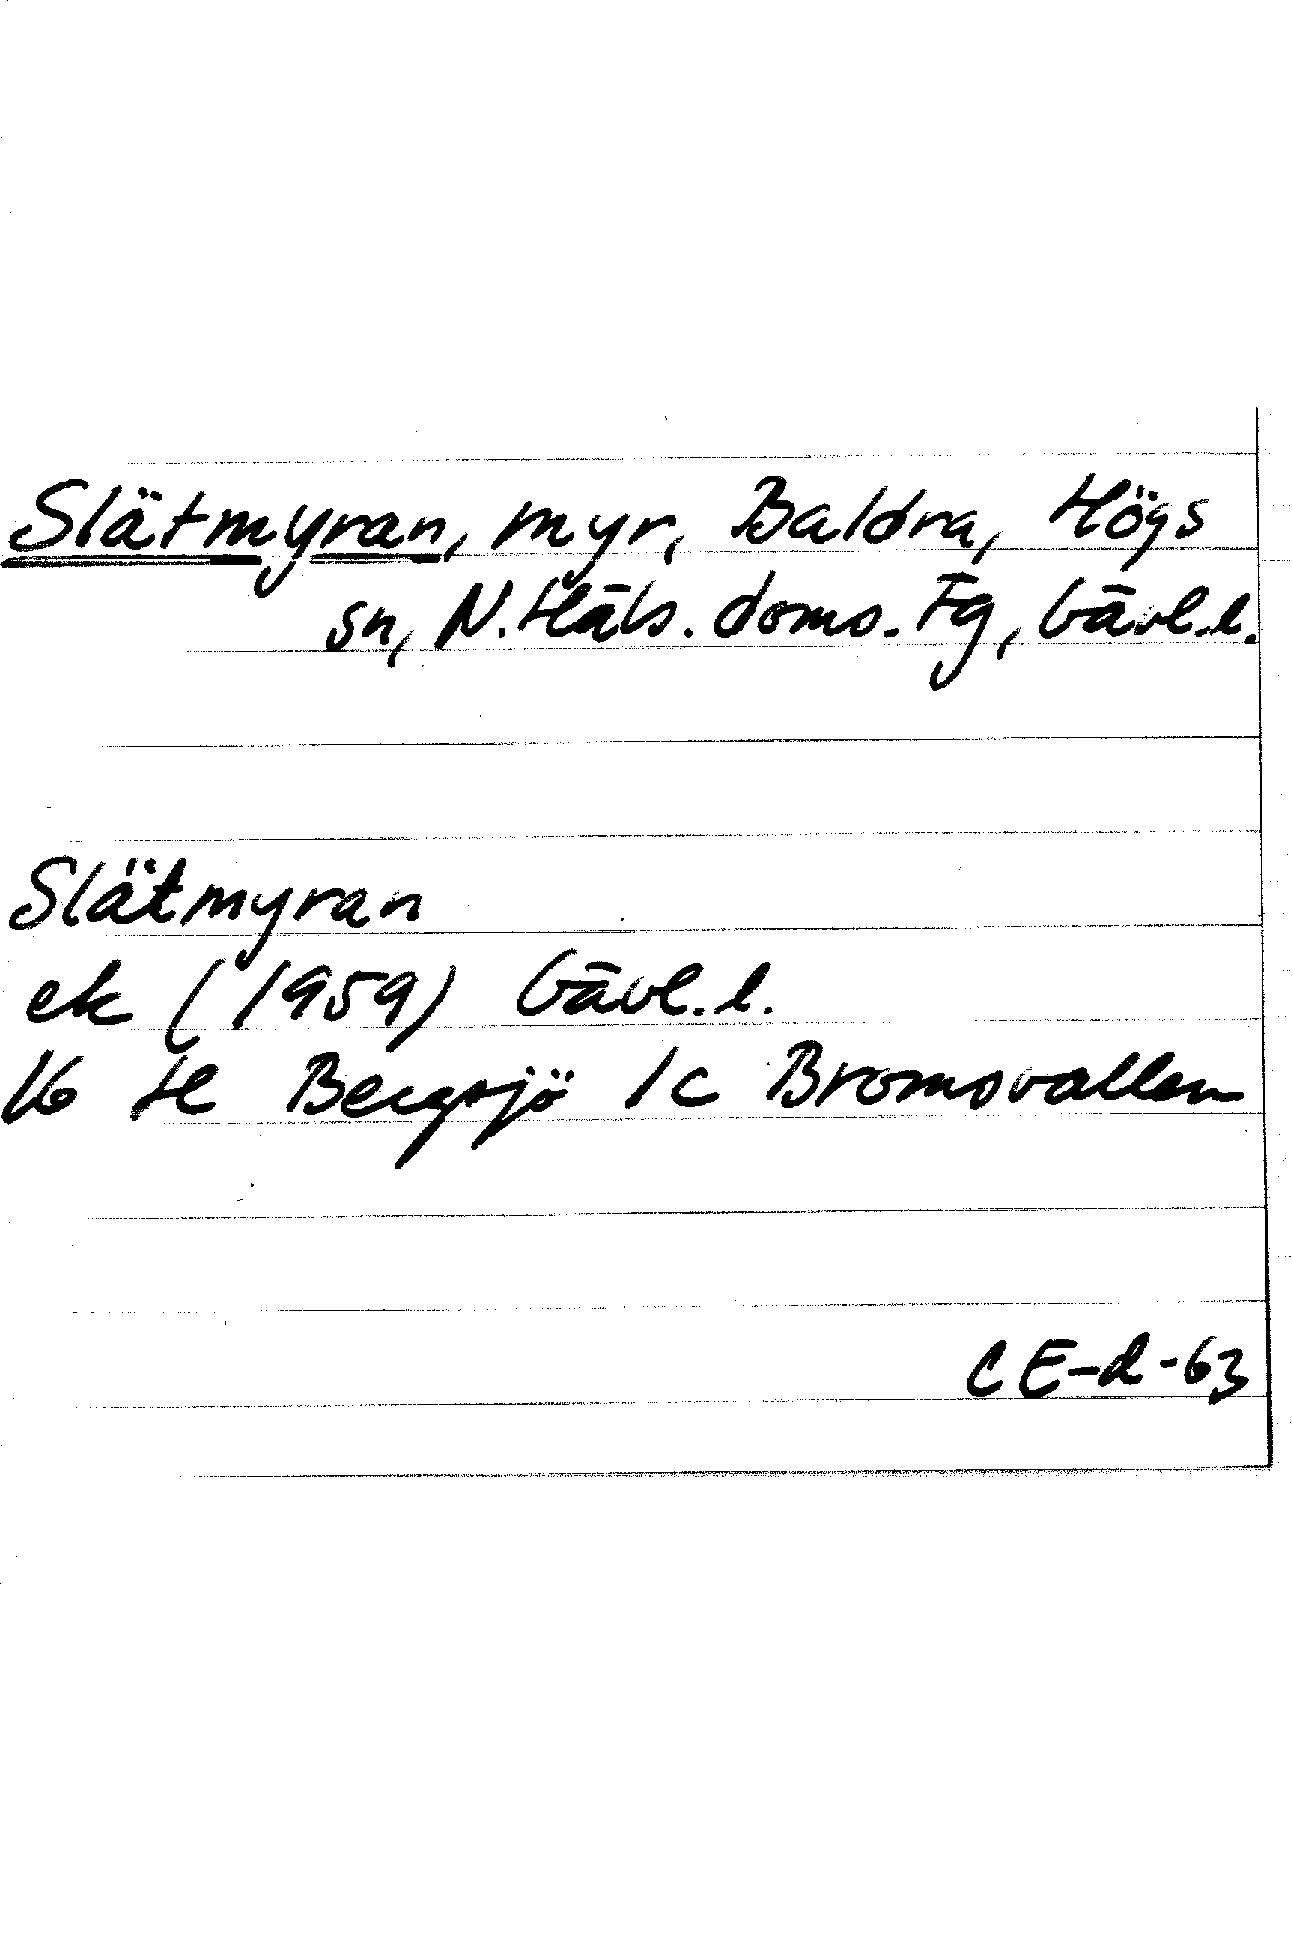 Slätmyran, myr, Baldra, Högs
sn, N. Häls. doms. Fg, Gävl. l.
Slätmyran
ek (1959) Gävl. l.
16 H Bergsjö 1c Bromsvallen
CE-d-63